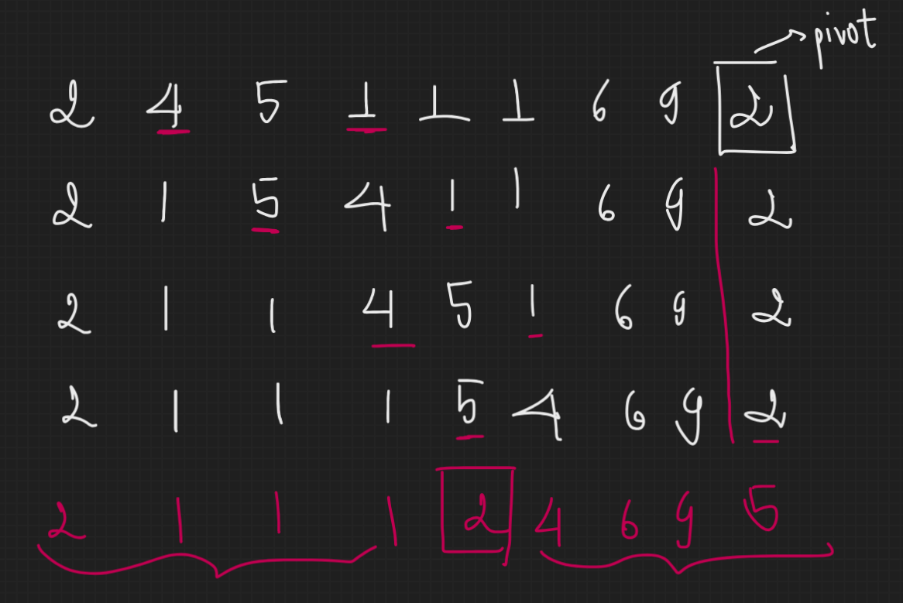 pivot
2 4 5 1 1 1 6 9 2
2 1 5 4 1 1 6 9 2
2 1 1 4 5 1 6 9 2
2 1 1 1 5 4 6 9 2
2 1 1 1 2 4 6 9 5